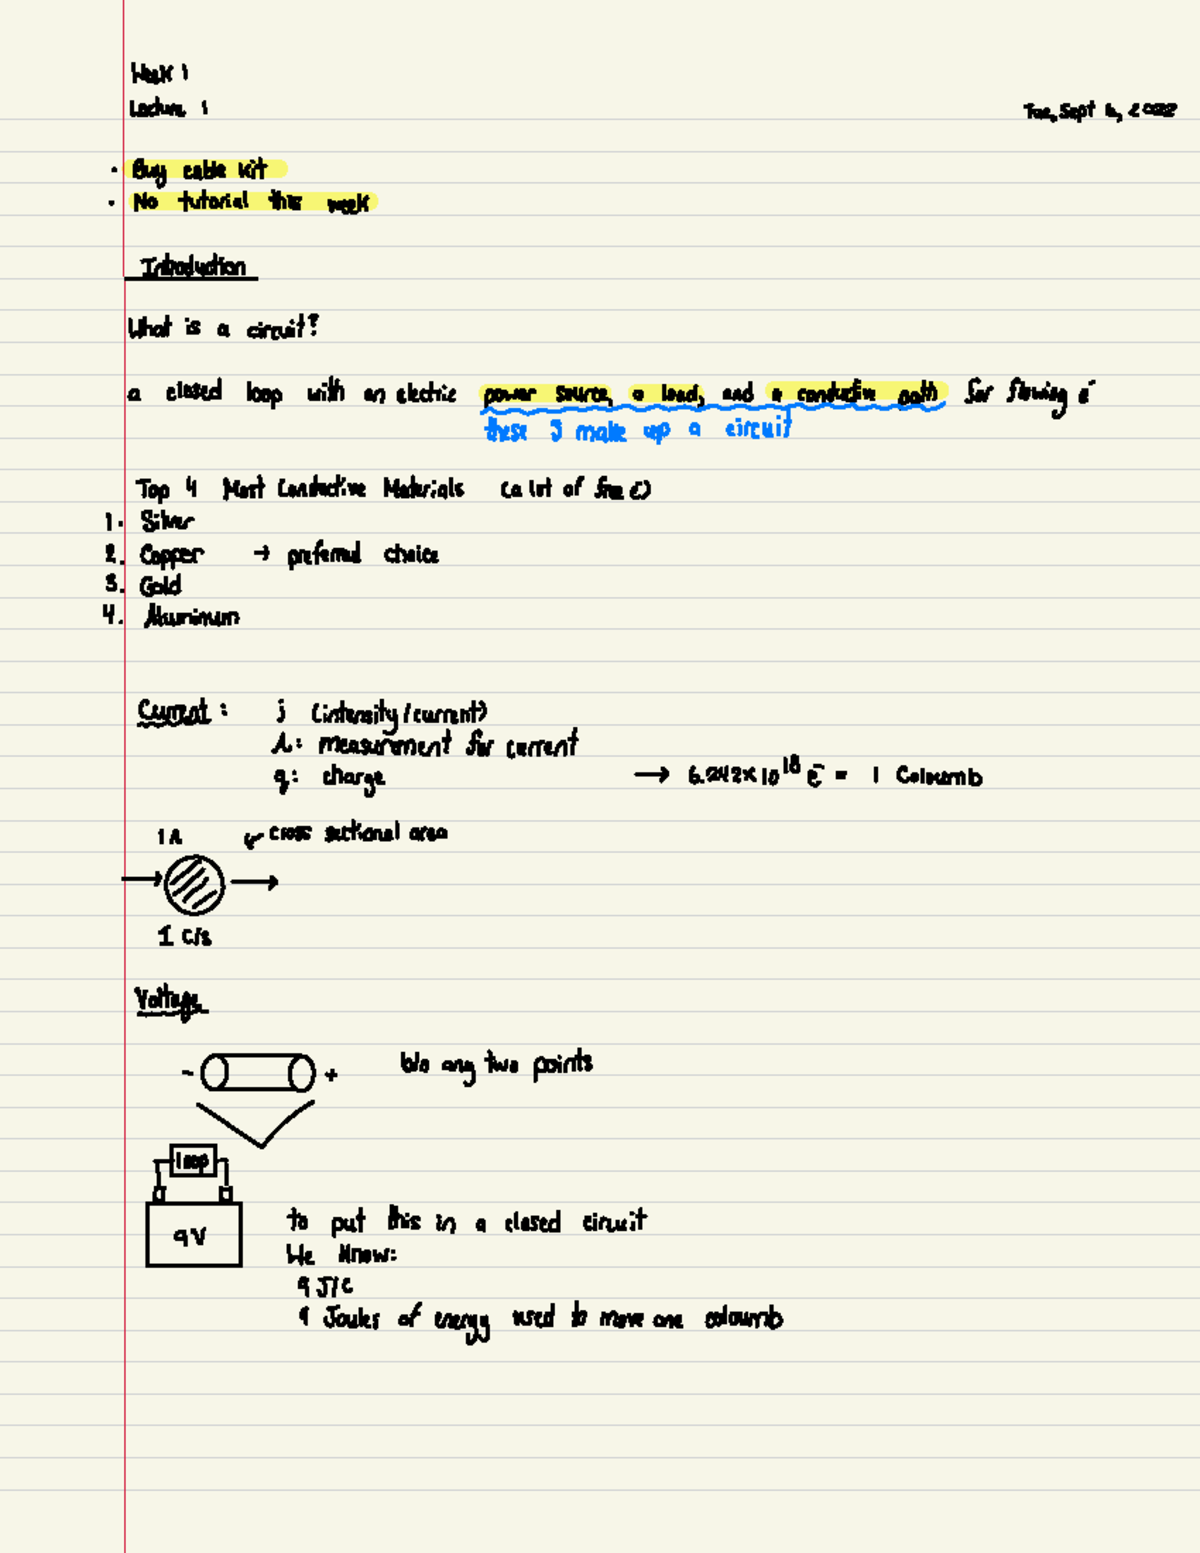 Week 1
Lecture 1
Tue, Sept 6, 2022
• Buy cable kit
• No tutorial this week
Introduction
What is a circuit?
a closed loop with an electric power source, a load, and a conductive path for flowing e⁻
these 3 make up a circuit
Top 4 Most Conductive Materials (a lot of free e⁻)
1. Silver
2. Copper → preferred choice
3. Gold
4. Aluminum
Current: i (intensity/current)
A: measurment for current
q: charge → 6.242×10¹⁸ e⁻ = 1 Coloumb
1A ↙ cross sectional area
1 C/s
Voltage
- + b/w any two points
loop
9V
to put this in a closed circuit
We know:
9 J/C
9 Joules of energy used to move one coloumb